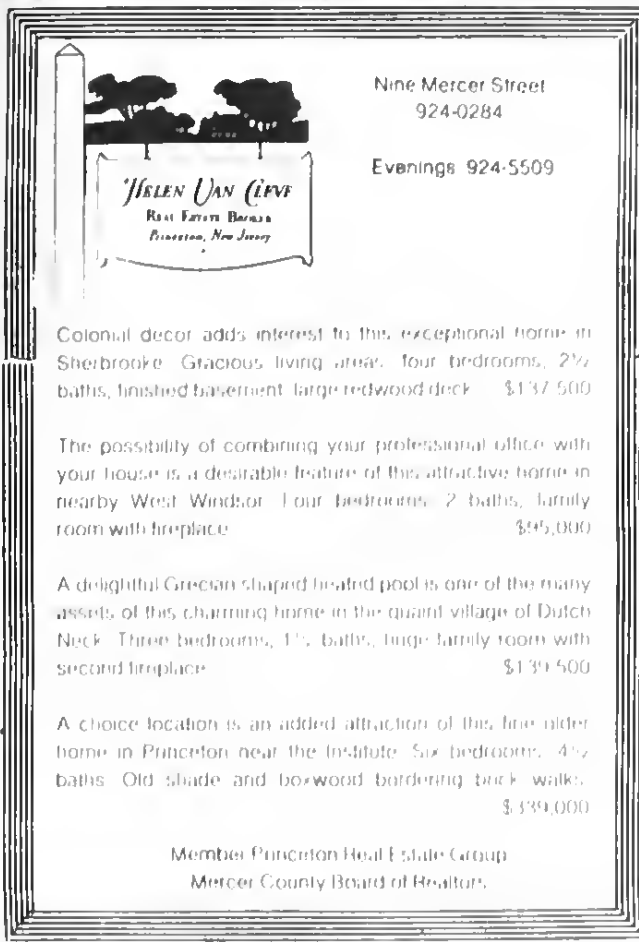 Nine Mercer Street
924-0284
Evenings 924-5509
HELEN VAN CLEVE
REAL ESTATE BROKER
Princeton, New Jersey
Colonial decor adds interest to this exceptional home in
Sherbrooke. Gracious living areas, four bedrooms, 2½
baths, finished basement, large redwood deck. $137,500
The possibility of combining your professional office with
your house is a desirable feature of this attractive home in
nearby West Windsor. Four bedrooms, 2 baths, family
room with fireplace. $95,000
A delightful Grecian shaped heated pool is one of the many
assets of this charming home in the quaint village of Dutch
Neck. Three bedrooms, 1½ baths, huge family room with
second fireplace. $139,500
A choice location is an added attraction of this fine older
home in Princeton near the Institute. Six bedrooms, 4½
baths. Old shade and boxwood bordering brick walks.
$339,000
Member Princeton Real Estate Group
Mercer County Board of Realtors